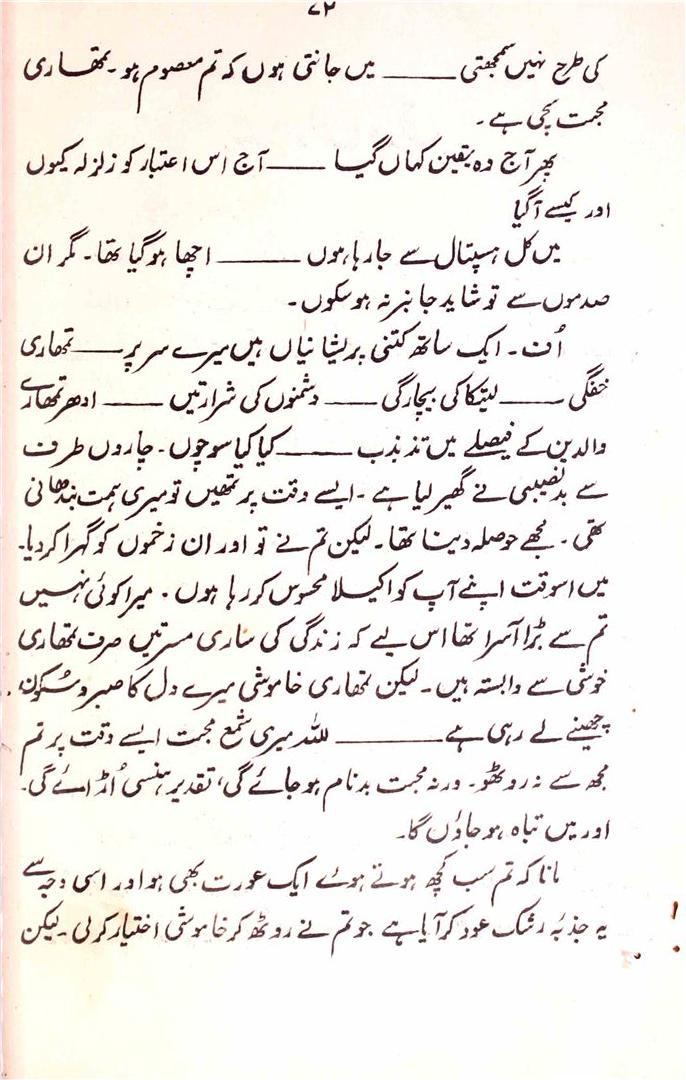 ۷۲
کی طرح نہیں سمجھتی ــــــ میں جانتی ہوں کہ تم معصوم ہو۔ تمھاری
محبت سچی ہے۔
پھر آج وہ یقین کہاں گیا ــــــ آج اس اعتبار کو زلزلہ کیوں
اور کیسے آگیا
میں کل ہسپتال سے جا رہا ہوں ــــــ اچھا ہوگیا تھا۔ مگر ان
صدموں سے تو شاید جانبر نہ ہو سکوں۔
اُف۔ ایک ساتھ کتنی پریشانیاں ہیں میرے سر پر ــــــ تمھاری
خفگی ــــــ لیتکا کی بیچارگی ــــــ دشمنوں کی شرارتیں ــــــ ادھر تمھارے
والدین کے فیصلے میں تذبذب ــــــ کیا کیا سوچوں۔ چاروں طرف
سے بدنصیبی نے گھیر لیا ہے۔ ایسے وقت پر تمھیں تو میری ہمت بندھانی
تھی۔ مجھے حوصلہ دینا تھا۔ لیکن تم نے تو اور ان زخموں کو گہرا کر دیا۔
میں اسوقت اپنے آپ کو اکیلا محسوس کر رہا ہوں۔ میرا کوئی نہیں
تم سے بڑا آسرا تھا اس لیے کہ زندگی کی ساری مسرتیں صرف تمھاری
خوشی سے وابستہ ہیں۔ لیکن تمھاری خاموشی میرے دل کا صبر و سُکون
چھینے لے رہی ہے ــــــ للّٰلہ میری شمع محبت ایسے وقت پر تم
مجھ سے نہ روٹھو۔ ورنہ محبت بدنام ہو جائے گی، تقدیر ہنسی اُڑائے گی۔
اور میں تباہ ہو جاؤں گا۔
مانا کہ تم سب کچھ ہوتے ہوئے ایک عورت بھی ہو اور اسی وجہ سے
یہ جذبۂ رشک عود کر آیا ہے جو تم نے روٹھ کر خاموشی اختیار کرلی۔ لیکن